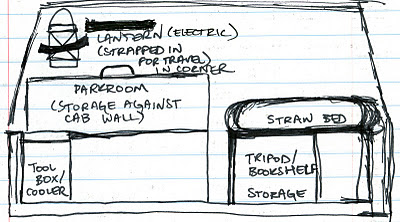 LANTERN (ELECTRIC)
(STRAPPED IN
FOR TRAVEL)
IN CORNER
PARKROOM
(STORAGE AGAINST
CAB WALL)
STRAW BED
TOOL
BOX/
COOLER
TRIPOD/
BOOKSHELF
STORAGE